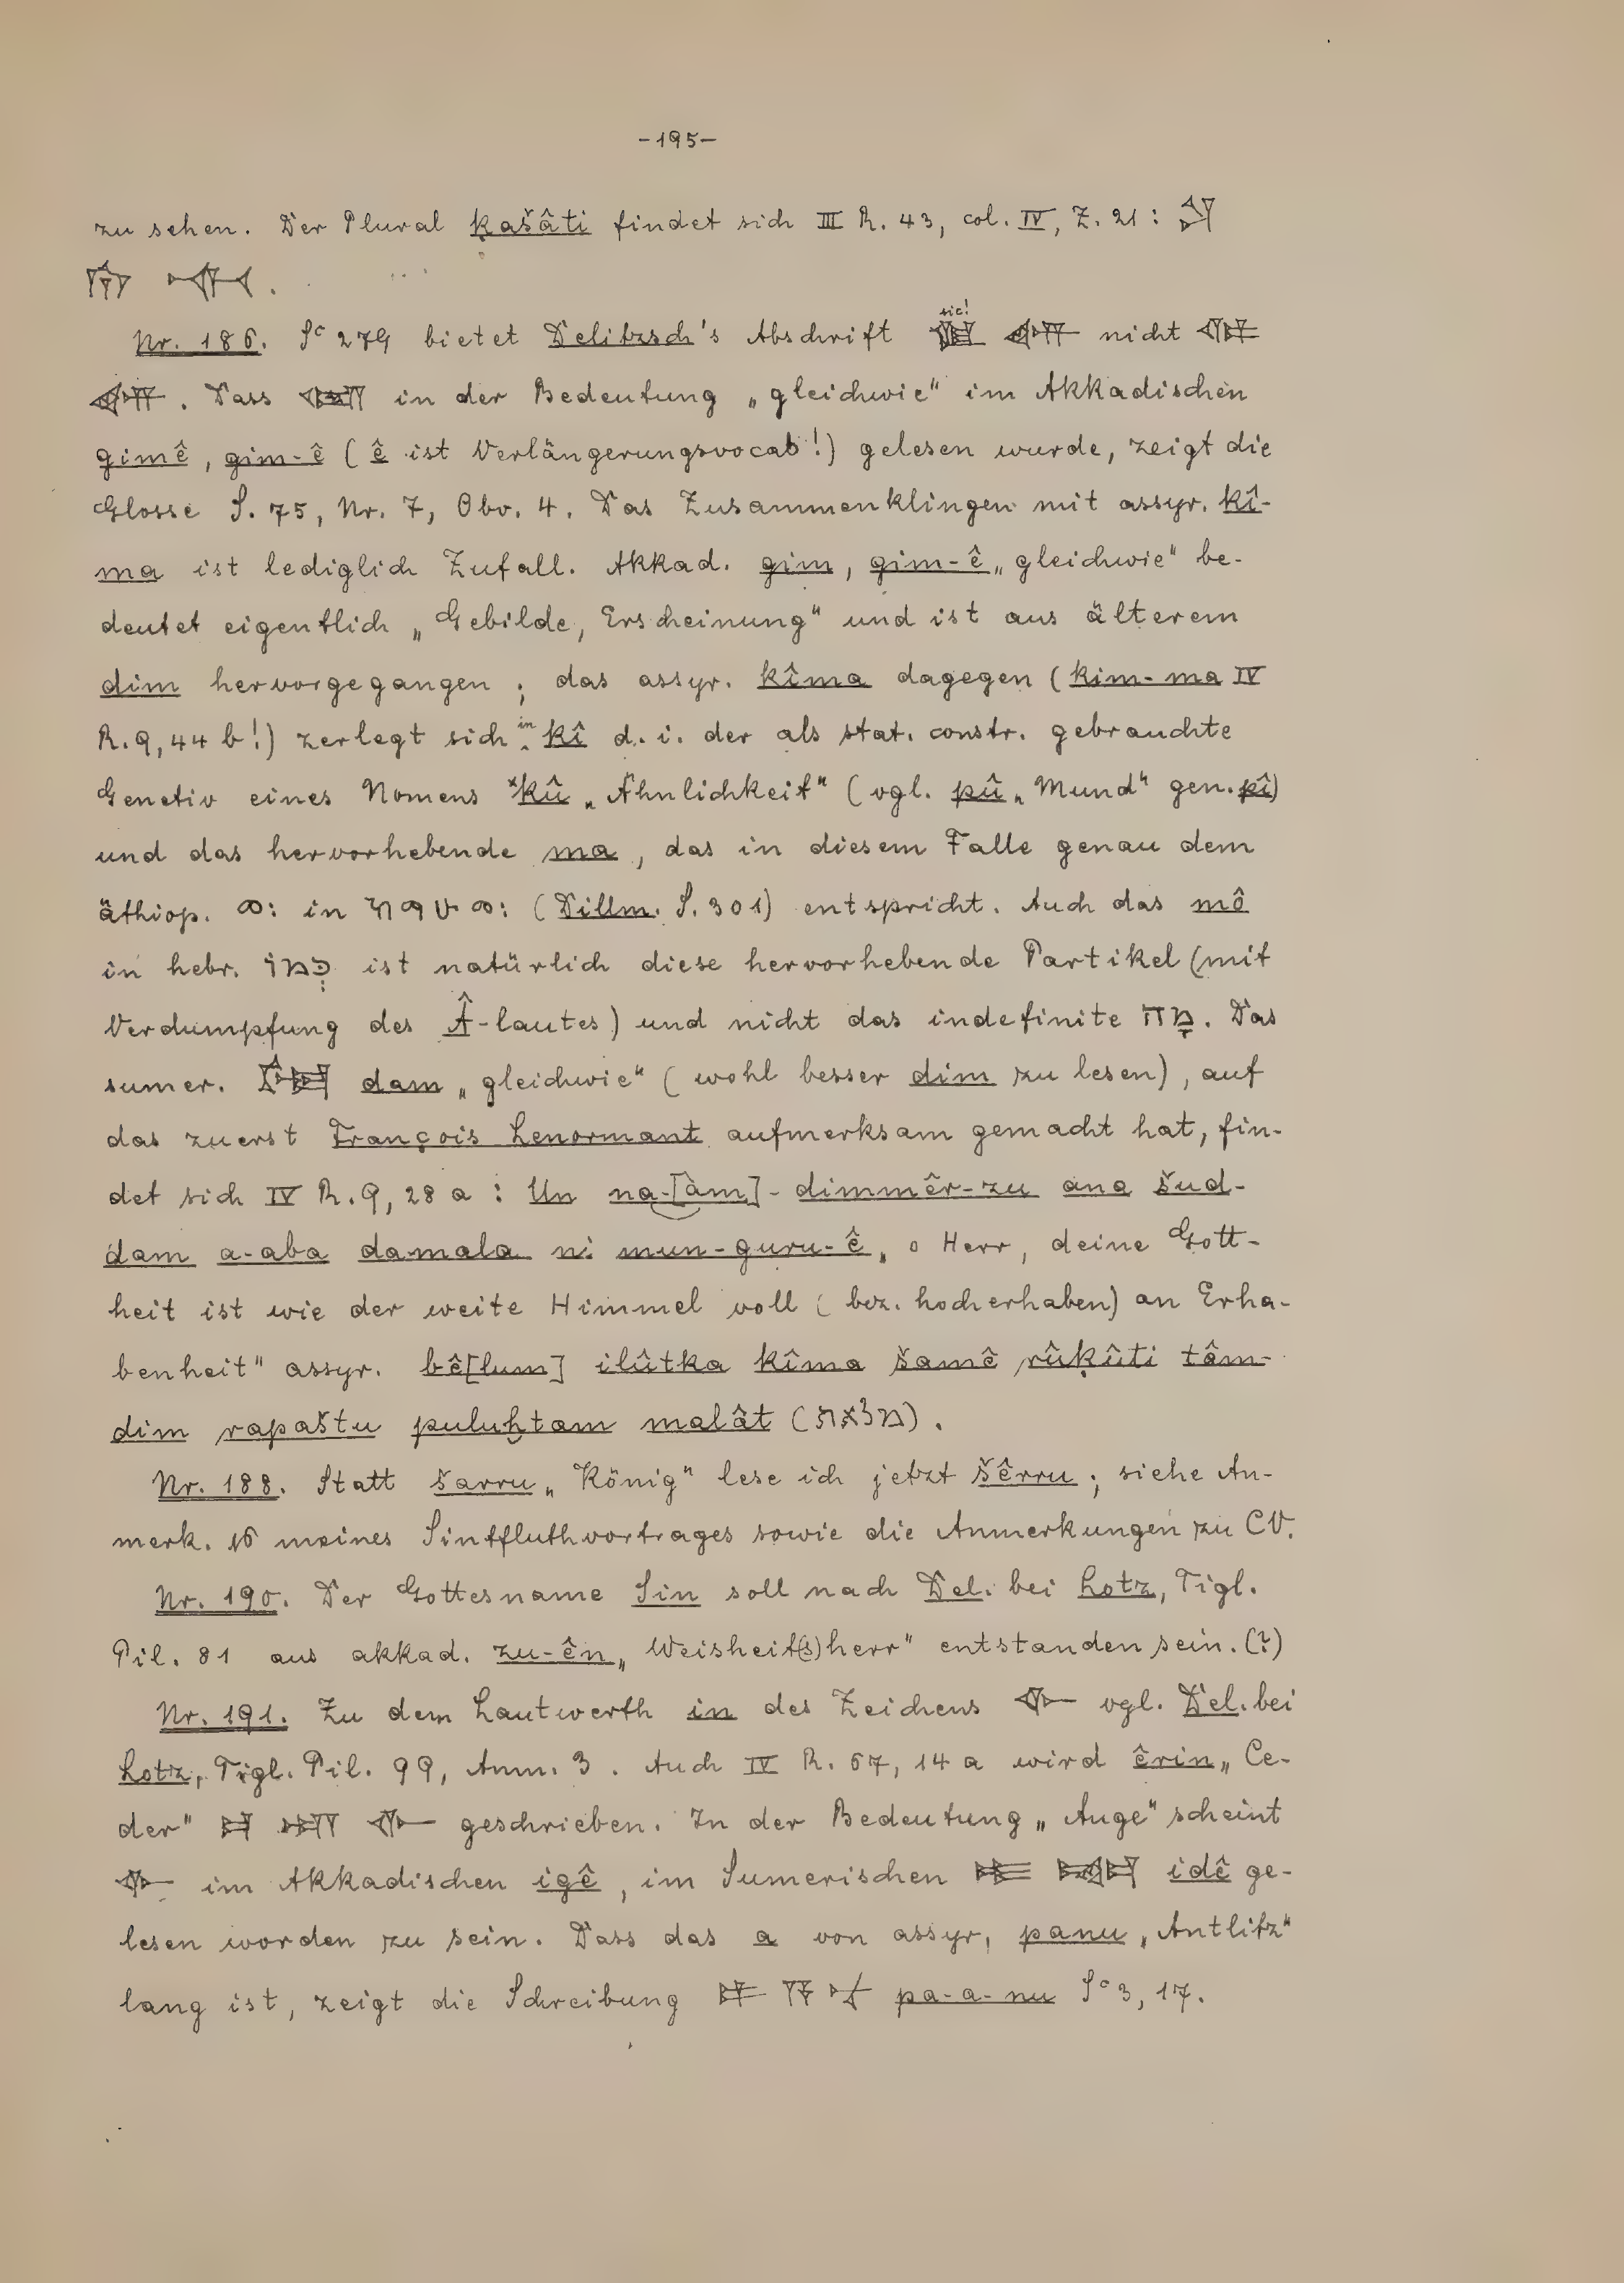 -195-
zu sehen. Der Plural ḳašâti findet sich III R. 43, col. IV, Z. 21:
.
Nr. 186. Sᶜ 279 bietet Delitzsch's Abschrift sic! nicht
. Dass in der Bedeutung „gleichwie" im Akkadischen
gimê, gim-ê (ê ist Verlängerungsvocal!) gelesen wurde, zeigt die
Glosse S. 75, Nr. 7, Obv. 4. Das Zusammenklingen mit assyr. kî-
ma ist lediglich Zufall. Akkad. gim, gim-ê „gleichwie" be-
deutet eigentlich „Gebilde, Erscheinung" und ist aus älterem
dim hervorgegangen; das assyr. kîma dagegen (kim-ma IV
R. 9, 44 b!) zerlegt sich in kî d. i. der als stat. constr. gebrauchte
Genetiv eines Nomens *kû „Ähnlichkeit" (vgl. pû „Mund" gen. pî)
und das hervorhebende ma, das in diesem Falle genau dem
äthiop. ጦ: in (Dillm. S. 301) entspricht. Auch das mô
in hebr. כְּמוֹ ist natürlich diese hervorhebende Partikel (mit
Verdumpfung des Â-lautes) und nicht das indefinite מָה. Das
sumer. dam „gleichwie" (wohl besser dim zu lesen), auf
das zuerst François Lenormant aufmerksam gemacht hat, fin-
det sich IV R. 9, 28 a: Un na-[àm]-dimmêr-zu ana šud-
dam a-aba damala ni mun-guru-ê „o Herr, deine Gott-
heit ist wie der weite Himmel voll (bez. hocherhaben) an Erha-
benheit" assyr. bê[lum] ilûtka kîma šamê rûḳûti tâm-
dim rapaštu puluḫtam malât (מלאת).
Nr. 188. Statt šarru „König" lese ich jetzt šêrru; siehe An-
merk. 16 meines Sintfluthvortrages sowie die Anmerkungen zu CV.
Nr. 190. Der Gottesname Sin soll nach Del. bei Lotz, Tigl.
Pil. 81 aus akkad. zu-ên „Weisheit(s)herr" entstanden sein. (?)
Nr. 191. Zu dem Lautwerth in des Zeichens vgl. Del. bei
Lotz, Tigl. Pil. 99, Anm. 3. Auch IV R. 67, 14 a wird êrin „Ce-
der" geschrieben. In der Bedeutung „Auge" scheint
im Akkadischen igê, im Sumerischen idê ge-
lesen worden zu sein. Dass das a von assyr. panu „Antlitz"
lang ist, zeigt die Schreibung pa-a-nu Sᶜ 3, 17.